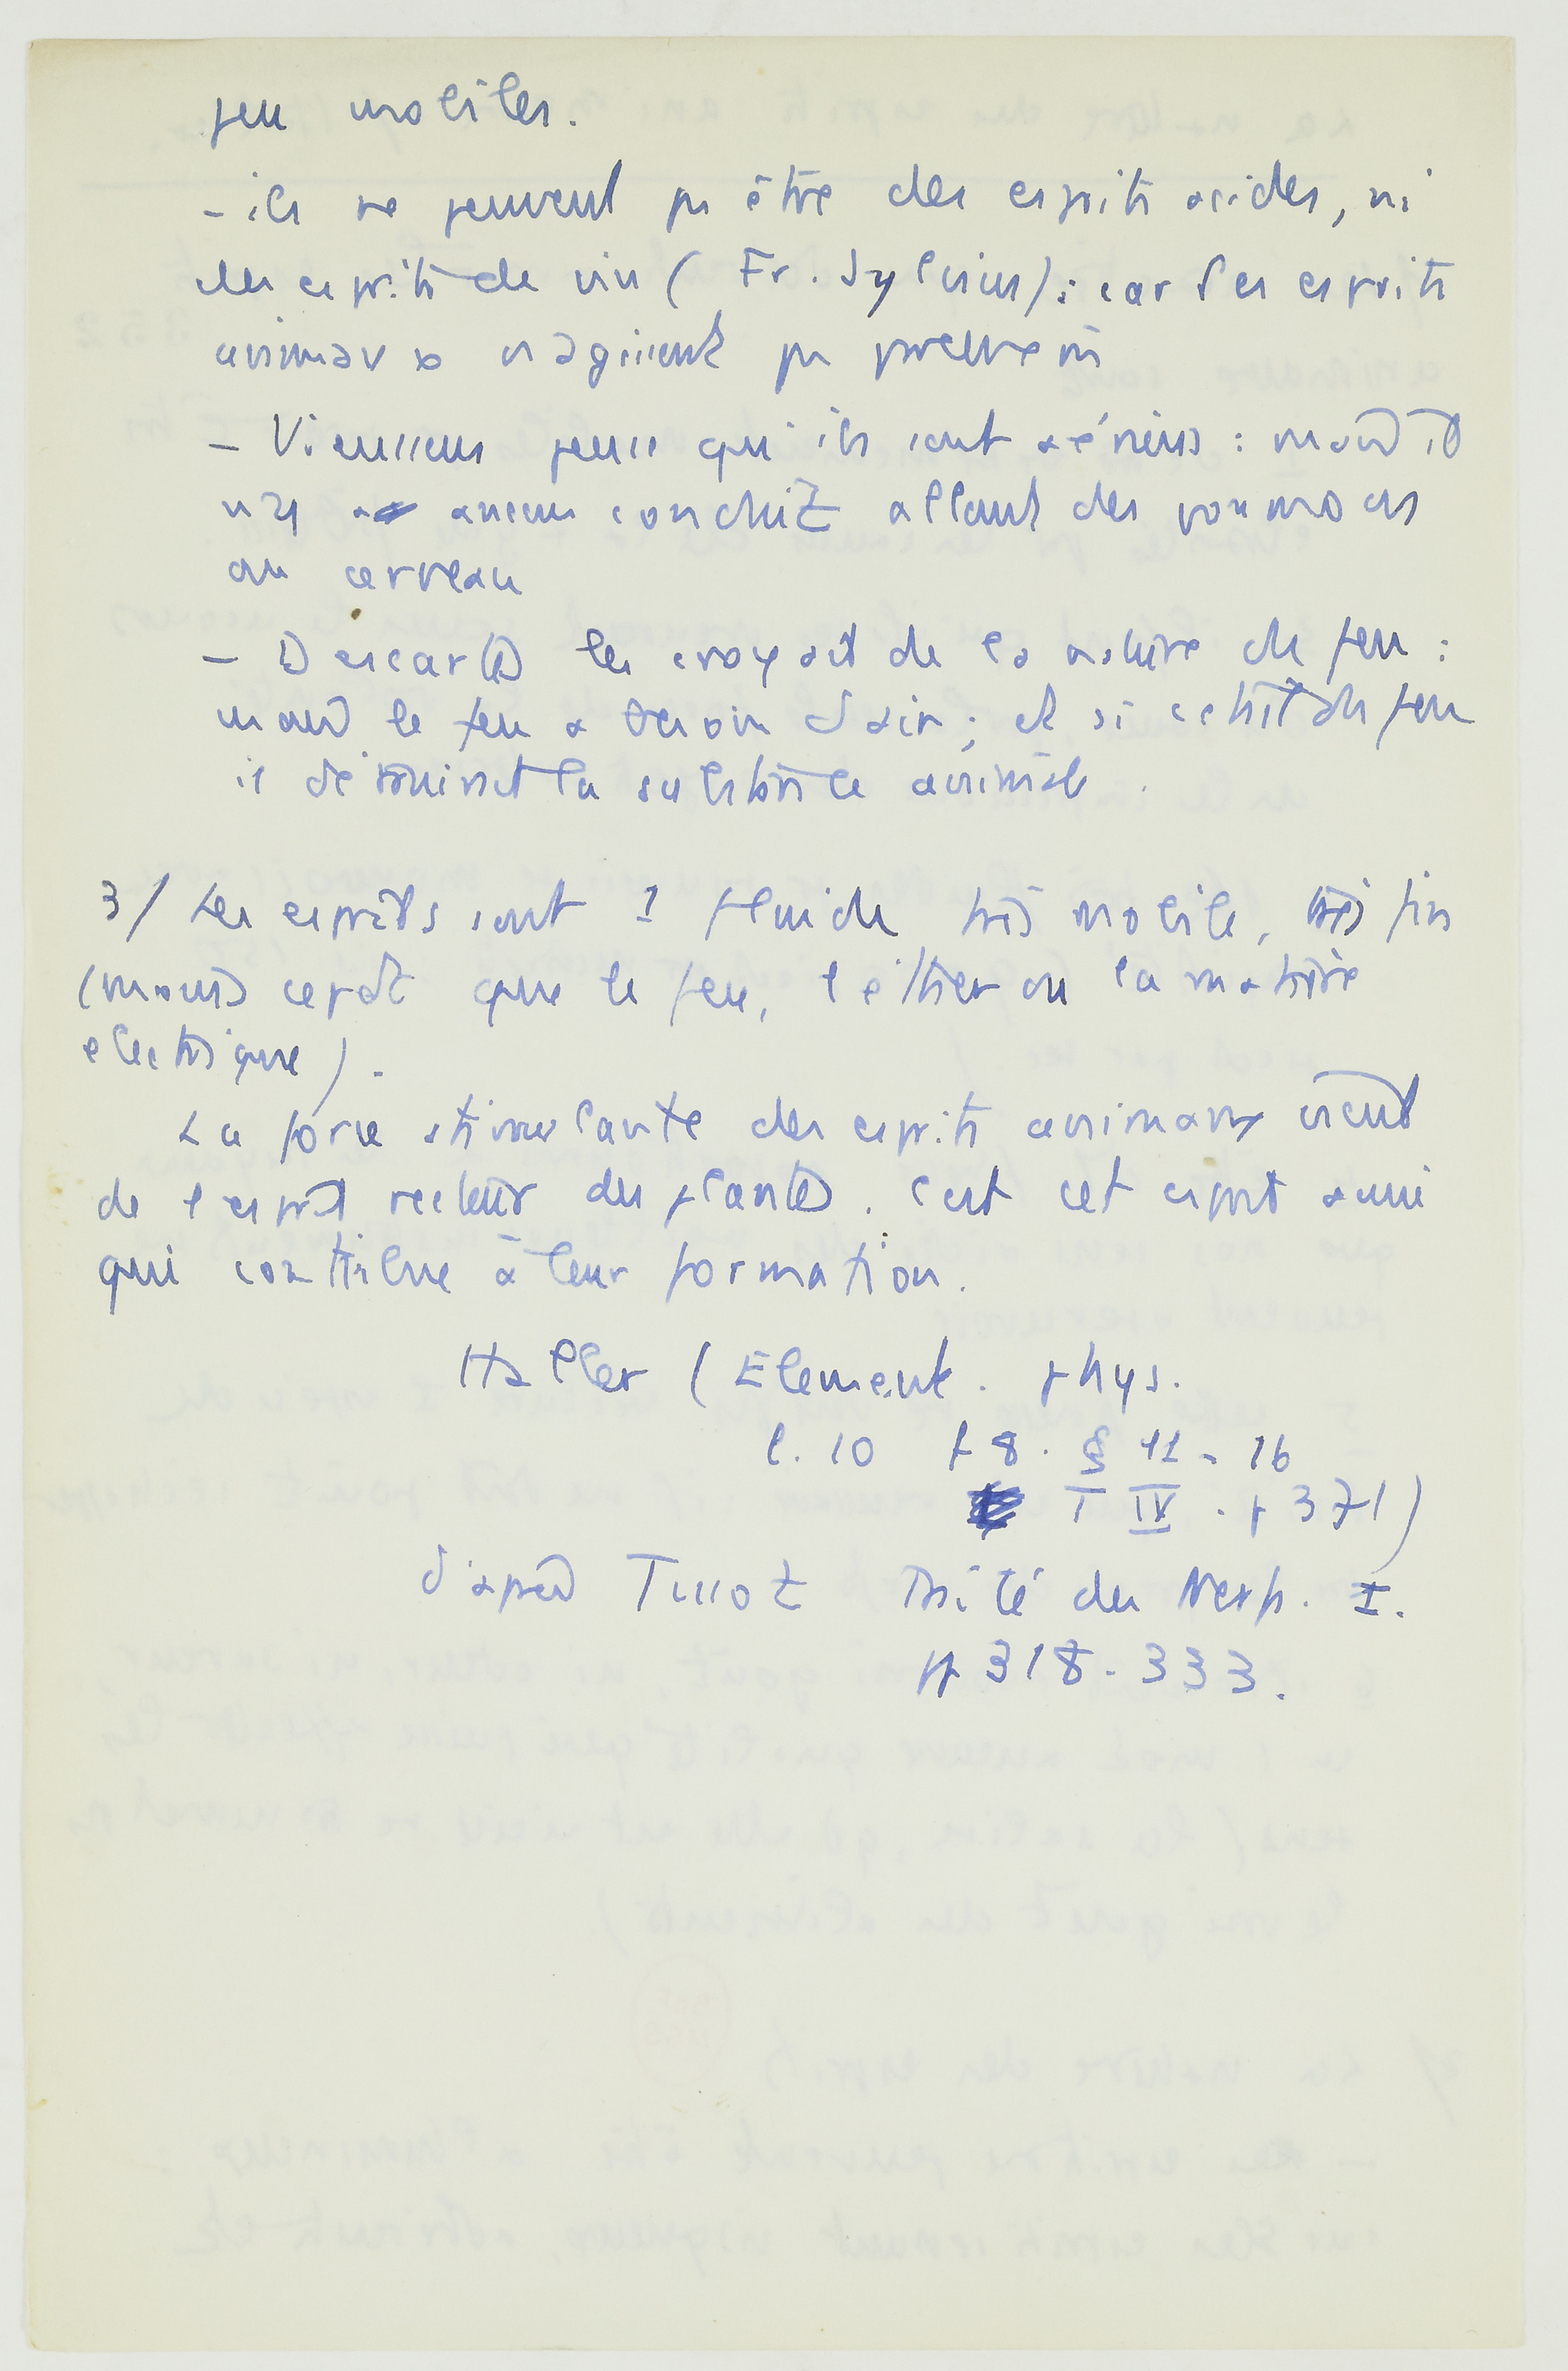 peu mobiles.
- ils ne peuvent pas être des esprits acides, ni
des esprits de vin (Fr. Sylvius) : car les esprits
animaux n'agissent pas
- Vieussens pense qu'ils sont aériens : mais il
n'y a aucun conduit allant des poumons
au cerveau
- Descartes les croyait de la nature du feu :
mais le feu a besoin d'air ; et si c'était du feu
il détruirait la substance animale.
3/ Les esprits sont 1 fluide très mobile, très fin
(moins cepdt que le feu, l'éther ou la matière
électrique).
La force stimulante des esprits animaux vient
de l'esprit recteur des plantes. C'est cet esprit aussi
qui contribue à leur formation.
Haller (Element. phys.
l. 10 p 8. § 11 - 16
T IV. p 371)
d'après Tissot Traité des Nerfs. I.
pp 318-333.